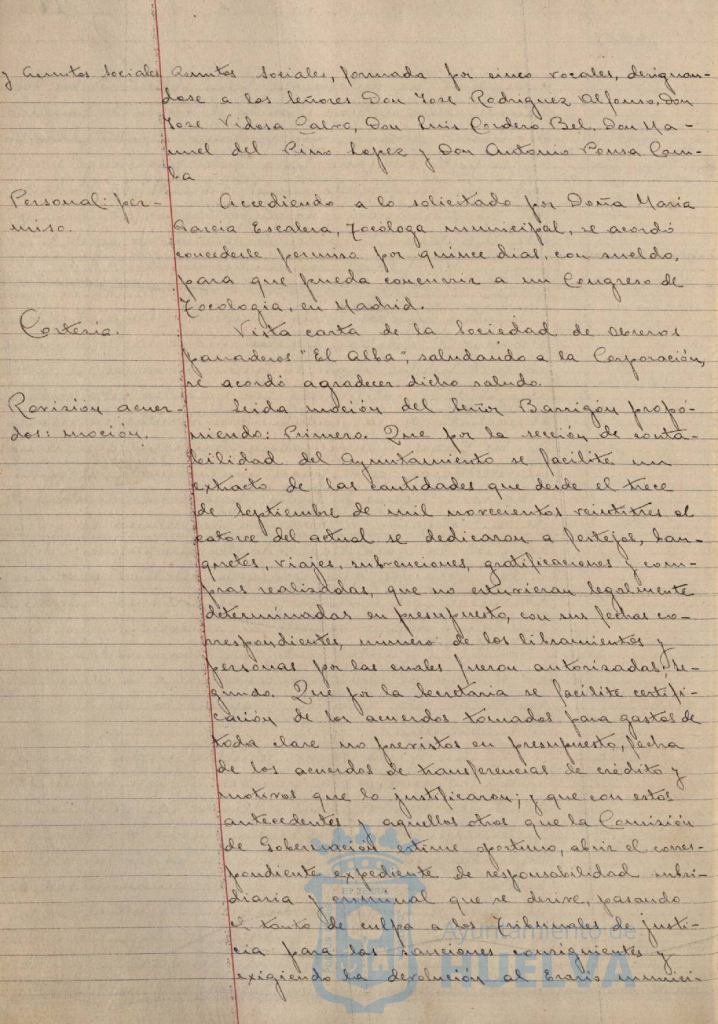 y Asuntos sociales Asuntos sociales, formada por cinco vocales, designan-
dose a los señores Don José Rodriguez Alfonso, Don
José Vidosa Calvo, Don Luis Cordero Bel, Don Ma-
nuel del Pino Lopez y Don Antonio Ponsa Com-
ba
Personal: per-
miso.
Accediendo a lo solicitado por Doña María
García Escalera, Tocóloga municipal, se acordó
concederle permiso por quince dias, con sueldo,
para que pueda concurrir a un Congreso de
Tocología, en Madrid.
Cortesia.
Vista carta de la Sociedad de Obreros
panaderos "El Alba", saludando a la Corporación,
se acordó agradecer dicho saludo.
Revisión acuer-
dos: moción.
Leida moción del Señor Barrigón propo-
niendo: Primero. Que por la sección de conta-
bilidad del Ayuntamiento se facilite un
extracto de las cantidades que desde el trece
de Septiembre de mil novecientos veintitres al
catorce del actual se dedicaron a festejos, ban-
quetes, viajes, subvenciones, gratificaciones y com-
pras realizadas, que no estuvieran legalmente
determinadas en presupuesto, con sus fechas co-
rrespondientes, número de los libramientos y
personas por las cuales fueron autorizadas; Se-
gundo. Que por la Secretaria se facilite certifi-
cación de los acuerdos tomados para gastos de
toda clase no previstos en presupuesto, fecha
de los acuerdos de transferencias de crédito y
motivos que lo justificaron; y que con estos
antecedentes y aquellos otros que la Comisión
de Gobernación estime oportuno, abrir el corres-
pondiente expediente de responsabilidad subsi-
diaria y criminal que se derive, pasando
el tanto de culpa a los Tribunales de justi-
cia para las sanciones consiguientes y
exigiendo la devolución al Erario munici-
Ayuntamiento de
HUELVA